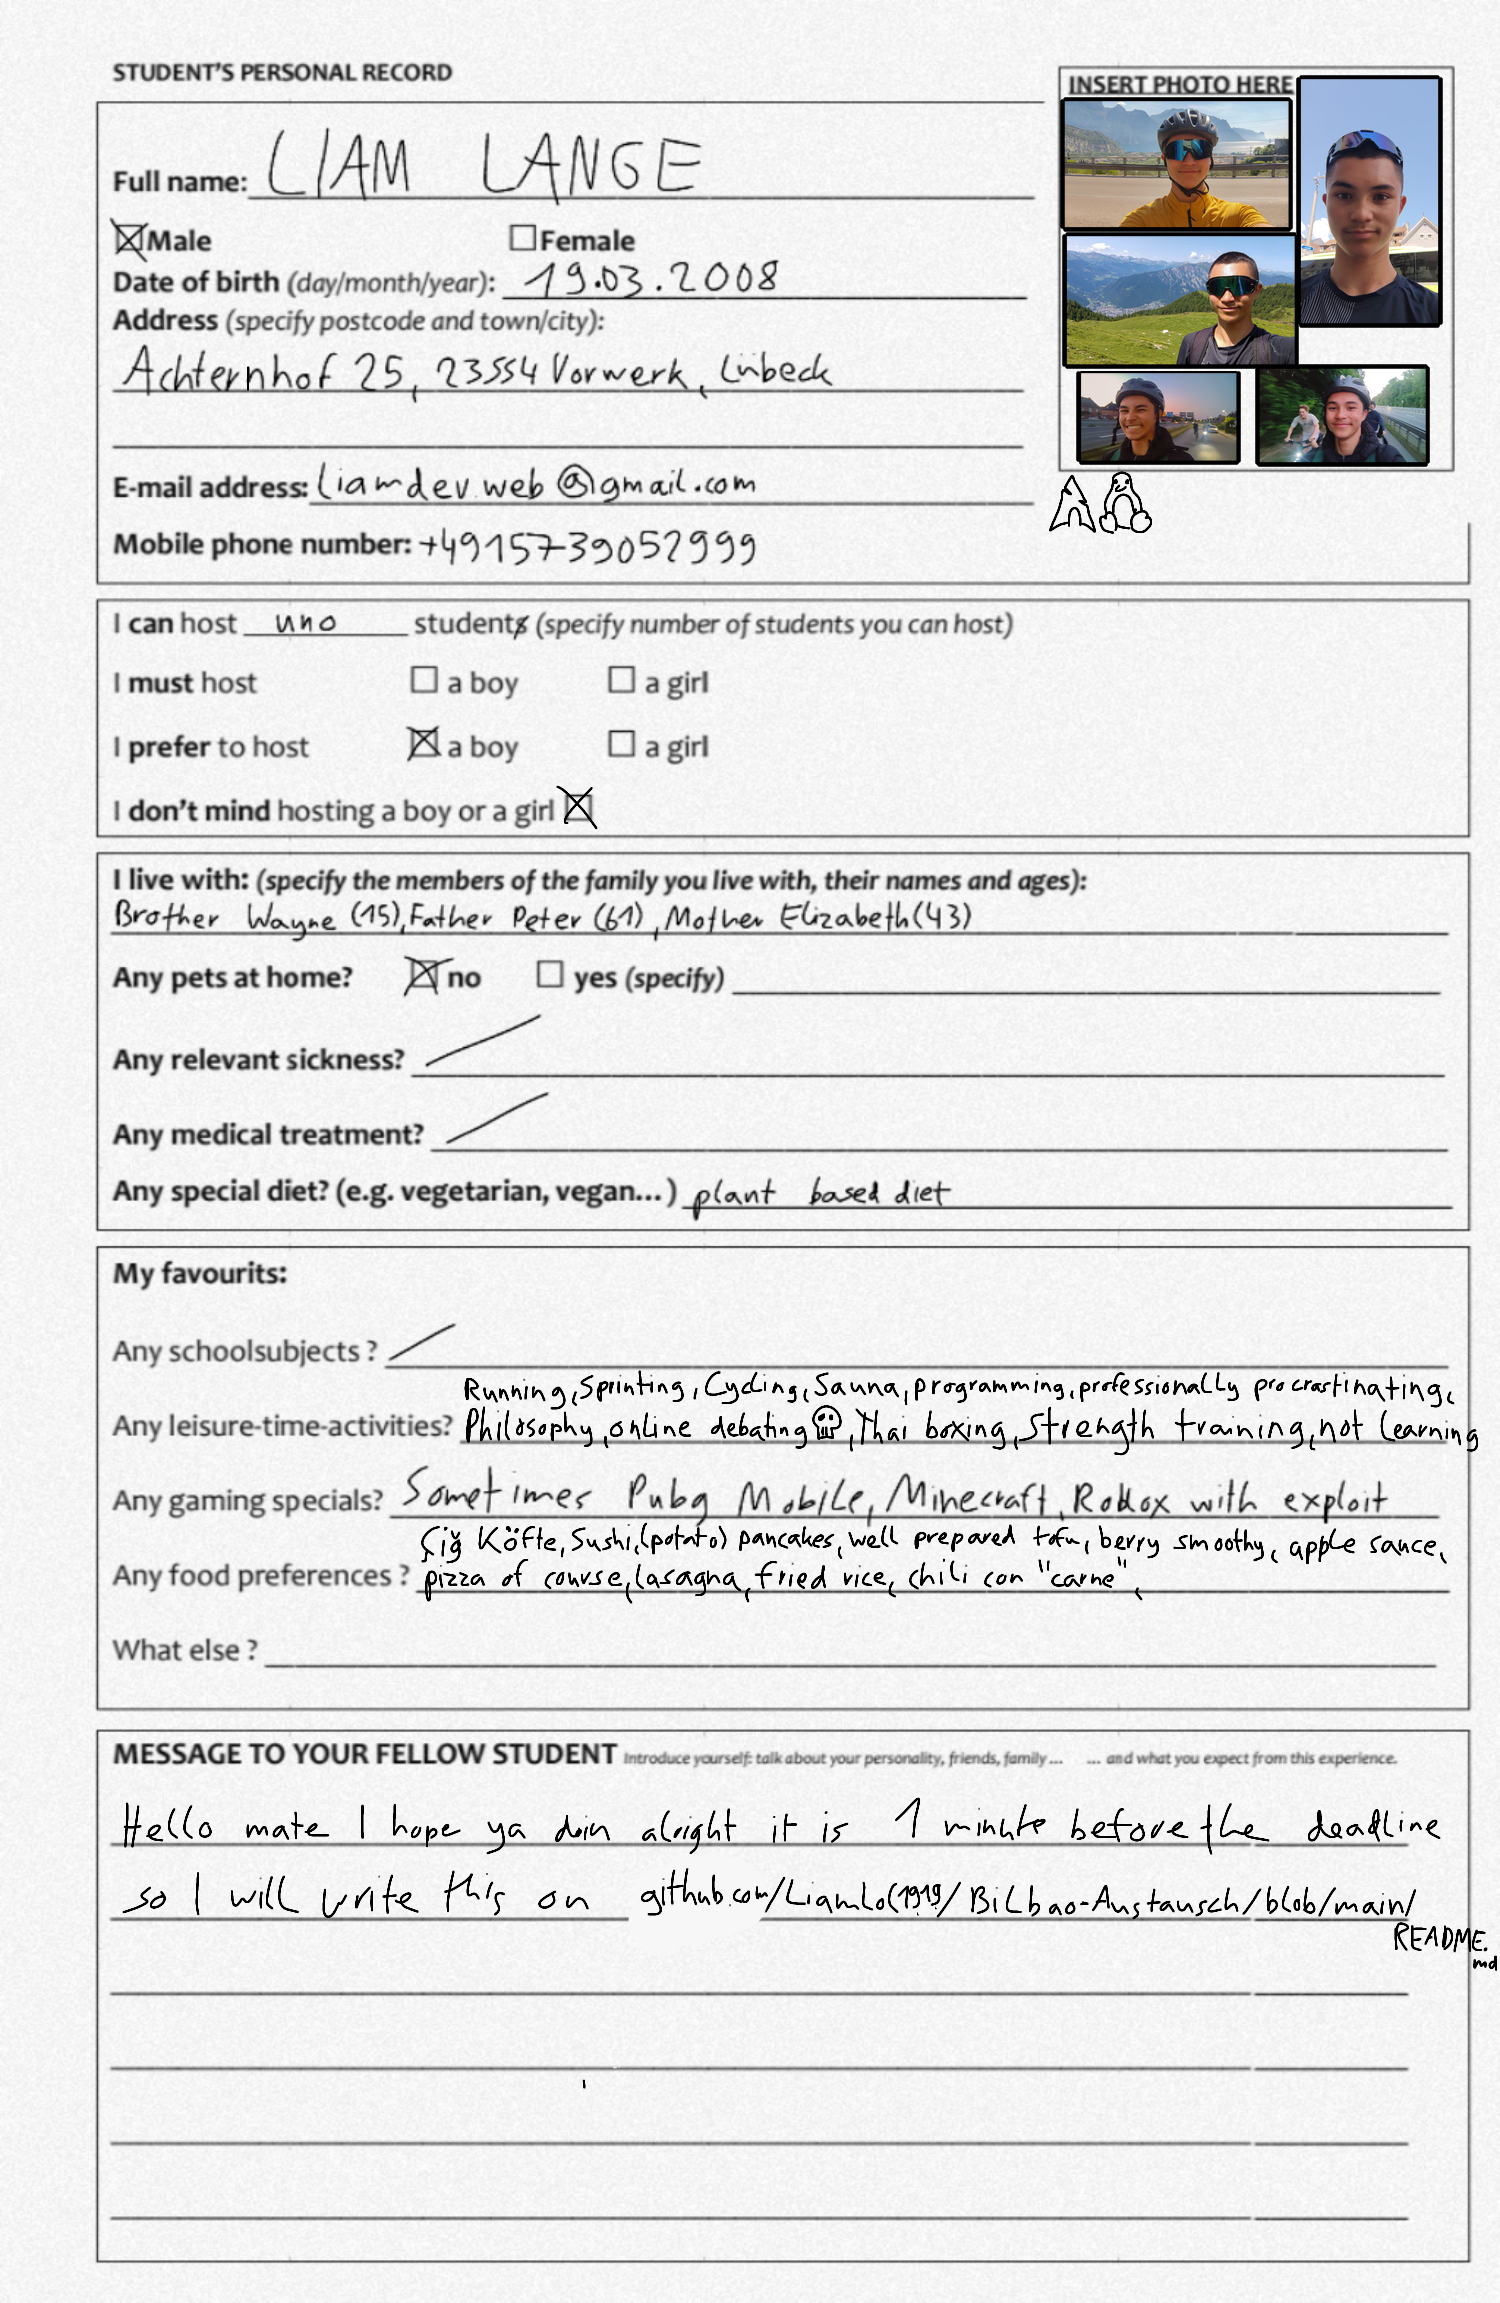 STUDENT'S PERSONAL RECORD
INSERT PHOTO HERE
Full name: LIAM LANGE
Male Female
Date of birth (day/month/year): 19.03.2008
Address (specify postcode and town/city):
Achternhof 25, 23554 Vorwerk, Lübeck
E-mail address: liamdev.web@gmail.com
Mobile phone number: +4915739052999
I can host uno students (specify number of students you can host)
I must host a boy a girl
I prefer to host a boy a girl
I don't mind hosting a boy or a girl
I live with: (specify the members of the family you live with, their names and ages):
Brother Wayne (15), Father Peter (61), Mother Elizabeth (43)
Any pets at home? no yes (specify)
Any relevant sickness?
Any medical treatment?
Any special diet? (e.g. vegetarian, vegan...) plant based diet
My favourits:
Any schoolsubjects ?
Running, Sprinting, Cycling, Sauna, programming, professionally procrastinating,
Any leisure-time-activities? Philosophy, online debating, Thai boxing, Strength training, not learning
Any gaming specials? Sometimes Pubg Mobile, Minecraft, Roblox with exploit
Çiğ Köfte, Sushi, (potato) pancakes, well prepared tofu, berry smoothy, apple sauce,
Any food preferences ? pizza of course, lasagna, fried rice, chili con "carne",
What else ?
MESSAGE TO YOUR FELLOW STUDENT Introduce yourself: talk about your personality, friends, family ... ... and what you expect from this experience.
Hello mate I hope ya doin alright it is 1 minute before the deadline
so I will write this on github.com/ /Bilbao-Austausch/blob/main/
README.
md